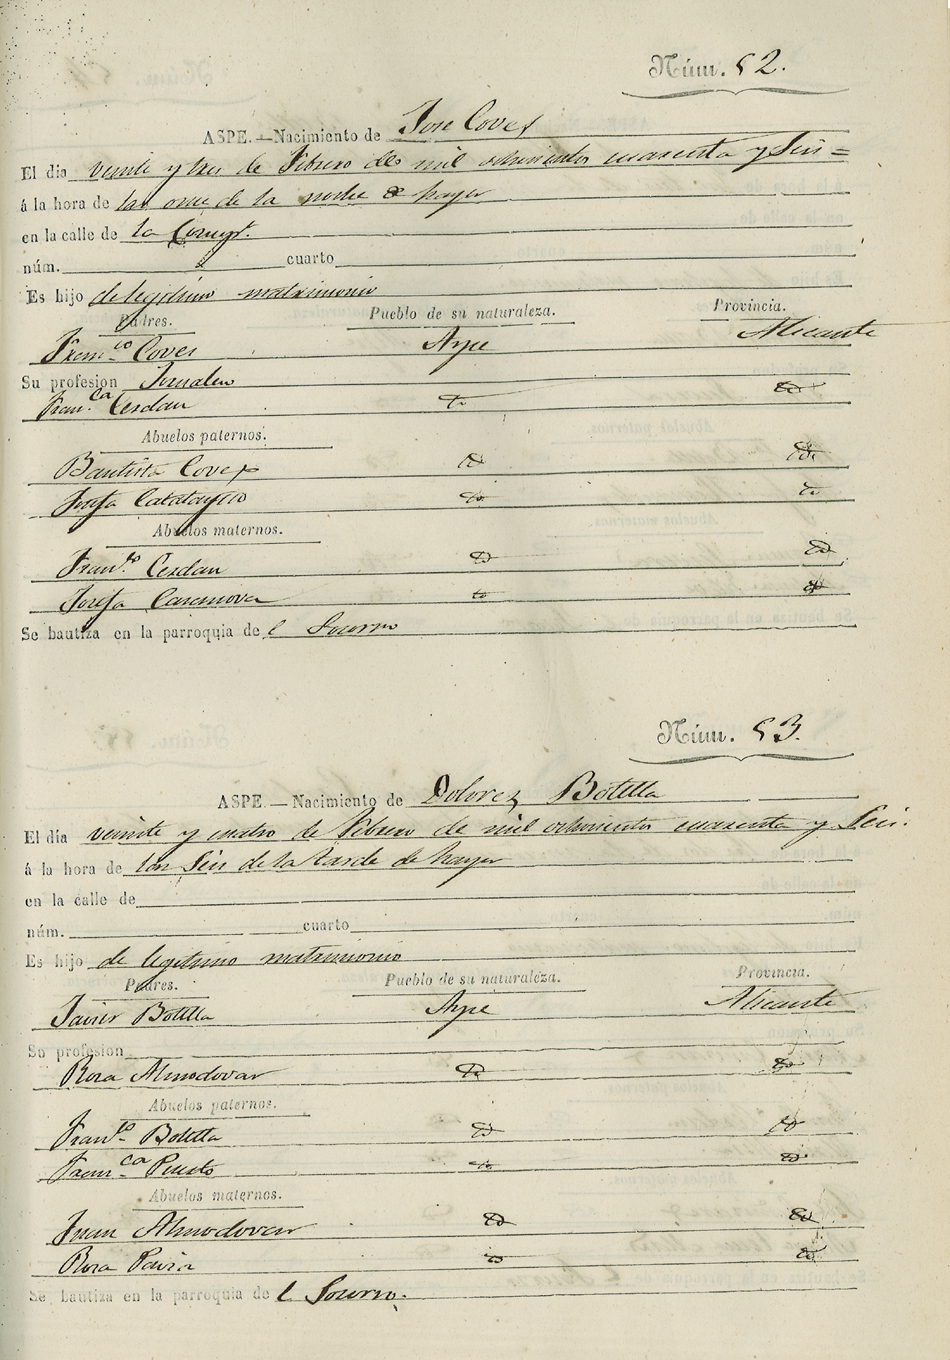 Núm. 52.
ASPE.—Nacimiento de Jose Coves
El dia veinte y tres de Febrero de mil ochocientos cuarenta y Seis=
á la hora de las once de la noche de hayer
en la calle de la
núm. 2 cuarto
Es hijo de legitimo matrimonio
Padres. Pueblo de su naturaleza. Provincia.
Franco. Coves Aspe Alicante
Su profesion Jornalero
Fran.ca Cerdan Yd. Yd.
Abuelos paternos.
Bautista Coves Yd. Yd.
Josefa Calatayud Yd. Yd.
Abuelos maternos.
Franco. Cerdan Yd. Yd.
Josefa Casanova Yd. Yd.
Se bautiza en la parroquia de l Socorro
Núm. 53.
ASPE.—Nacimiento de Dolores Botella
El día veinte y cuatro de Febrero de mil ochocientos cuarenta y Seis.
á la hora de las Seis de la tarde de hayer
en la calle de
núm. cuarto
Es hijo de legitimo matrimonio
Padres. Pueblo de su naturaleza. Provincia.
Javier Botella Aspe Alicante
Su profesion
Rosa Almodovar Yd. Yd.
Abuelos paternos.
Franco. Botella Yd. Yd.
Fran.ca Puerto Yd. Yd.
Abuelos maternos.
Juan Almodovar Yd. Yd.
Rosa Pavia Yd. Yd.
Se bautiza en la parroquia de l Socorro.